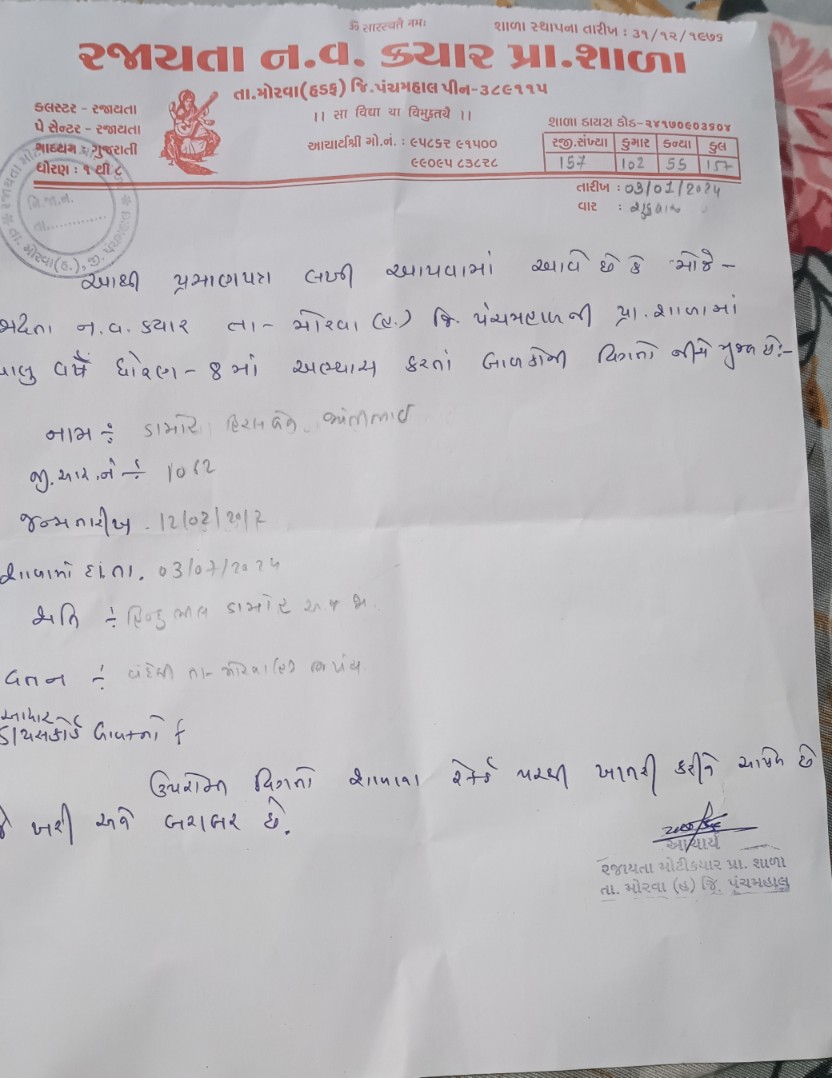 ૐ સારસ્વતૈ નમઃ
શાળા સ્થાપના તારીખ : ૩૧/૧૨/૧૯૭૬
રજાયતા ન.વ. ક્યાર પ્રા.શાળા
તા.મોરવા(હડફ) જિ.પંચમહાલ પીન-૩૮૯૧૧૫
।। સા વિદ્યા યા વિમુક્તયે ।।
કલસ્ટર - રજાયતા
પે સેન્ટર - રજાયતા
માધ્યમ : ગુજરાતી
ધોરણ : ૧ થી ૮
આચાર્યશ્રી મો.નં. : ૯૫૮૬૨ ૯૧૫૦૦
૯૯૦૯૫ ૮૩૮૨૮
શાળા ડાયસ કોડ-૨૪૧૭૦૯૦૩૭૦૪
રજી.સંખ્યા કુમાર કન્યા કુલ
157 102 55 157
તારીખ : 03/01/2024
વાર :
આથી પ્રમાણપત્ર લખી આપવામાં આવે છે કે મોજે -
ન.વ. ક્યાર તા - મોરવા (હ.) જિ. પંચમહાલની પ્રા. શાળામાં
ચાલુ વર્ષે ધોરણ - 8 માં અભ્યાસ કરતાં બાળકોની વિગતો નીચે મુજબ છે:-
નામ ઃ ડામોર
જી.આર.નં ઃ 1062
જન્મ તારીખ . 12/02/2012
શાળામાં દાખલ તા. 03/07/2024
જાતિ ઃ હિન્દુ ભીલ ડામોર અ.જ.જા.
વતન ઃ તા - મોરવા (હ)
આધાર
ડાયસકોર્ડ
ઉપરોક્ત વિગતો શાળાના રેકર્ડ પરથી ખાતરી કરીને આપેલ છે
જે ખરી અને બરાબર છે.
આચાર્ય
રજાયતા મોટીક્યાર પ્રા. શાળા
તા. મોરવા (હ) જિ. પંચમહાલ